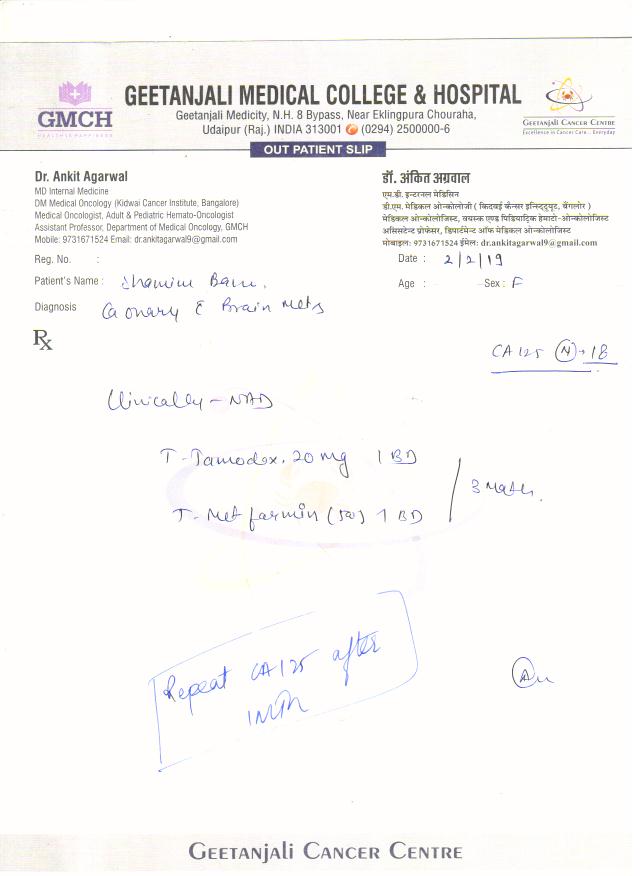 GMCH
HEALTH & HAPPINESS
GEETANJALI MEDICAL COLLEGE & HOSPITAL
Geetanjali Medicity, N.H. 8 Bypass, Near Eklingpura Chouraha,
Udaipur (Raj.) INDIA 313001 (0294) 2500000-6
GEETANJALI CANCER CENTRE
Excellence in Cancer Care... Everyday
OUT PATIENT SLIP
Dr. Ankit Agarwal
MD Internal Medicine
DM Medical Oncology (Kidwai Cancer Institute, Bangalore)
Medical Oncologist, Adult & Pediatric Hemato-Oncologist
Assistant Professor, Department of Medical Oncology, GMCH
Mobile: 9731671524 Email: dr.ankitagarwal9@gmail.com
डॉ. अंकित अग्रवाल
एम.डी. इन्टरनल मेडिसिन
डी.एम. मेडिकल ओन्कोलोजी ( किदवई कैन्सर इन्स्टिट्यूट, बैंगलोर )
मेडिकल ओन्कोलोजिस्ट, वयस्क एण्ड पिडियाट्रिक हेमाटो-ओन्कोलोजिस्ट
असिसटेन्ट प्रोफेसर, डिपार्टमेन्ट ऑफ मेडिकल ओन्कोलोजिस्ट
मोबाइल: 9731671524 ईमेल: dr.ankitagarwal9@gmail.com
Reg. No. :
Date : 2/2/19
Patient's Name : Shamim Banu.
Age : Sex : F
Diagnosis Ca ovary c̄ Brain Mets
Rx
CA 125 (N) → 18
Clinically - NAD
T- Tamodex. 20 mg 1 BD
T- Metformin (500) 1 BD
3 Mnths.
Repeat CA 125 after
1 Mth
GEETANJALI CANCER CENTRE